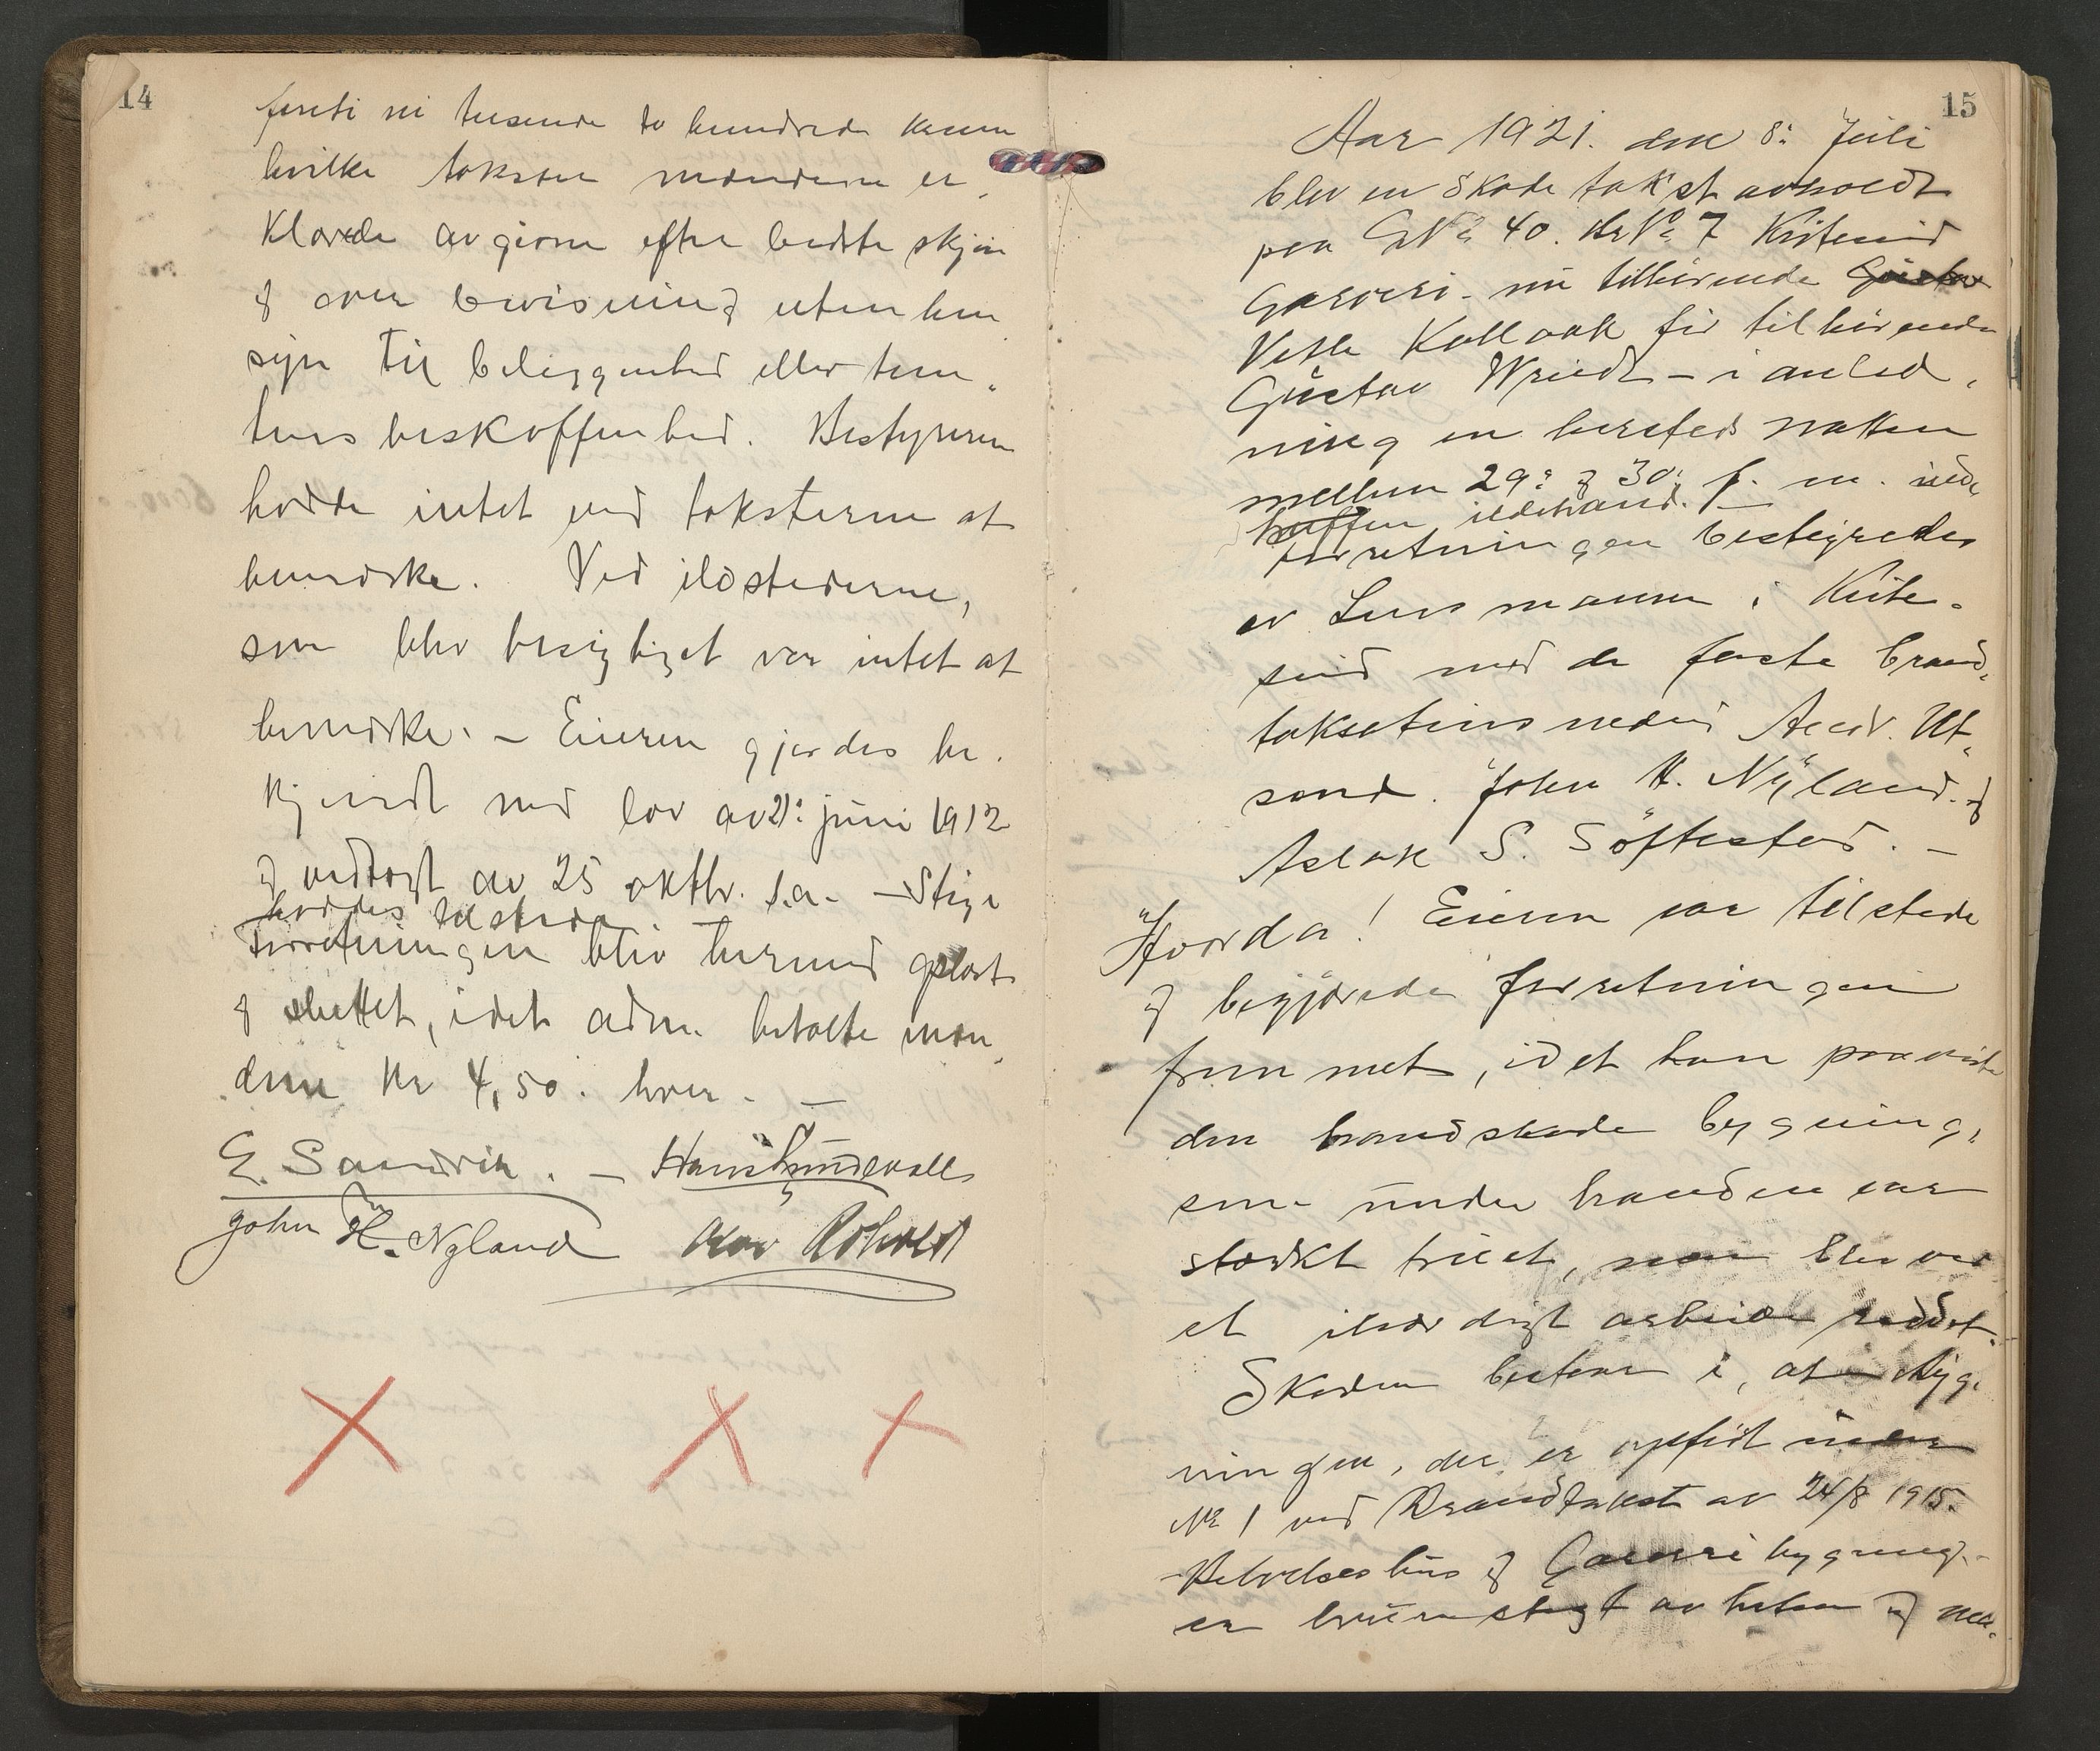 14
firti ni tusinde to hundrede kroner
hvilke takster mændene er„
klærede avgivne efter bedste skjøn
og over bevisning uten hen
syn til beliggenhed eller tom„
tens beskaffenhed. Bestyreren
hadde intet ved taksterne at
bemerke. Ved ildstederne,
som blev besigtiget var intet at
bemerke. – Eieren gjordes be„
kjendt med lov av 21: juni 1912
og vedtægt av 25 oktbr. s.a. – Stige
haddes tilstede
Forretningen blev hermed oplæst
og sluttet, idet adm. betalte mæn„
dene kr 4,50. hver. –
E. Sandvik. – Hans
John H. Nyland Olav
15
Aar 1921. den 8: Juli
blev en Skade takst avholdt
paa G№ 40. Br№ 7 Kviteseid
Garveri – nu tilhørende Gustav
Vetle Kallaak før tilhørende
Gustav Wriedt – i anled„
ning en hersteds natten
mellem 29: og 30: f. m. inde
truffen ildebrand. –
Forretningen bestyredes
av Lensmannen i Kvite„
seid med de faste brand„
taksationsmænd Andr. Ut„
sond. John H. Nyland. og
Aslak S. Söftestad. –
Hvorda! Eieren var tilstede
og begjærede forretningen
fremmet, idet han paaviste
den brandskade bygning,
som under branden var
stærkt truet, men blev ved
et ihærdigt arbeide reddet.
Skaden bestaar i, at Byg„
ningen, der er opført under
№ 1 ved Brandtakst av 24/8 1915.
– Beboelseshus og Garveribygning. –
er brunstegt av heten og ma„